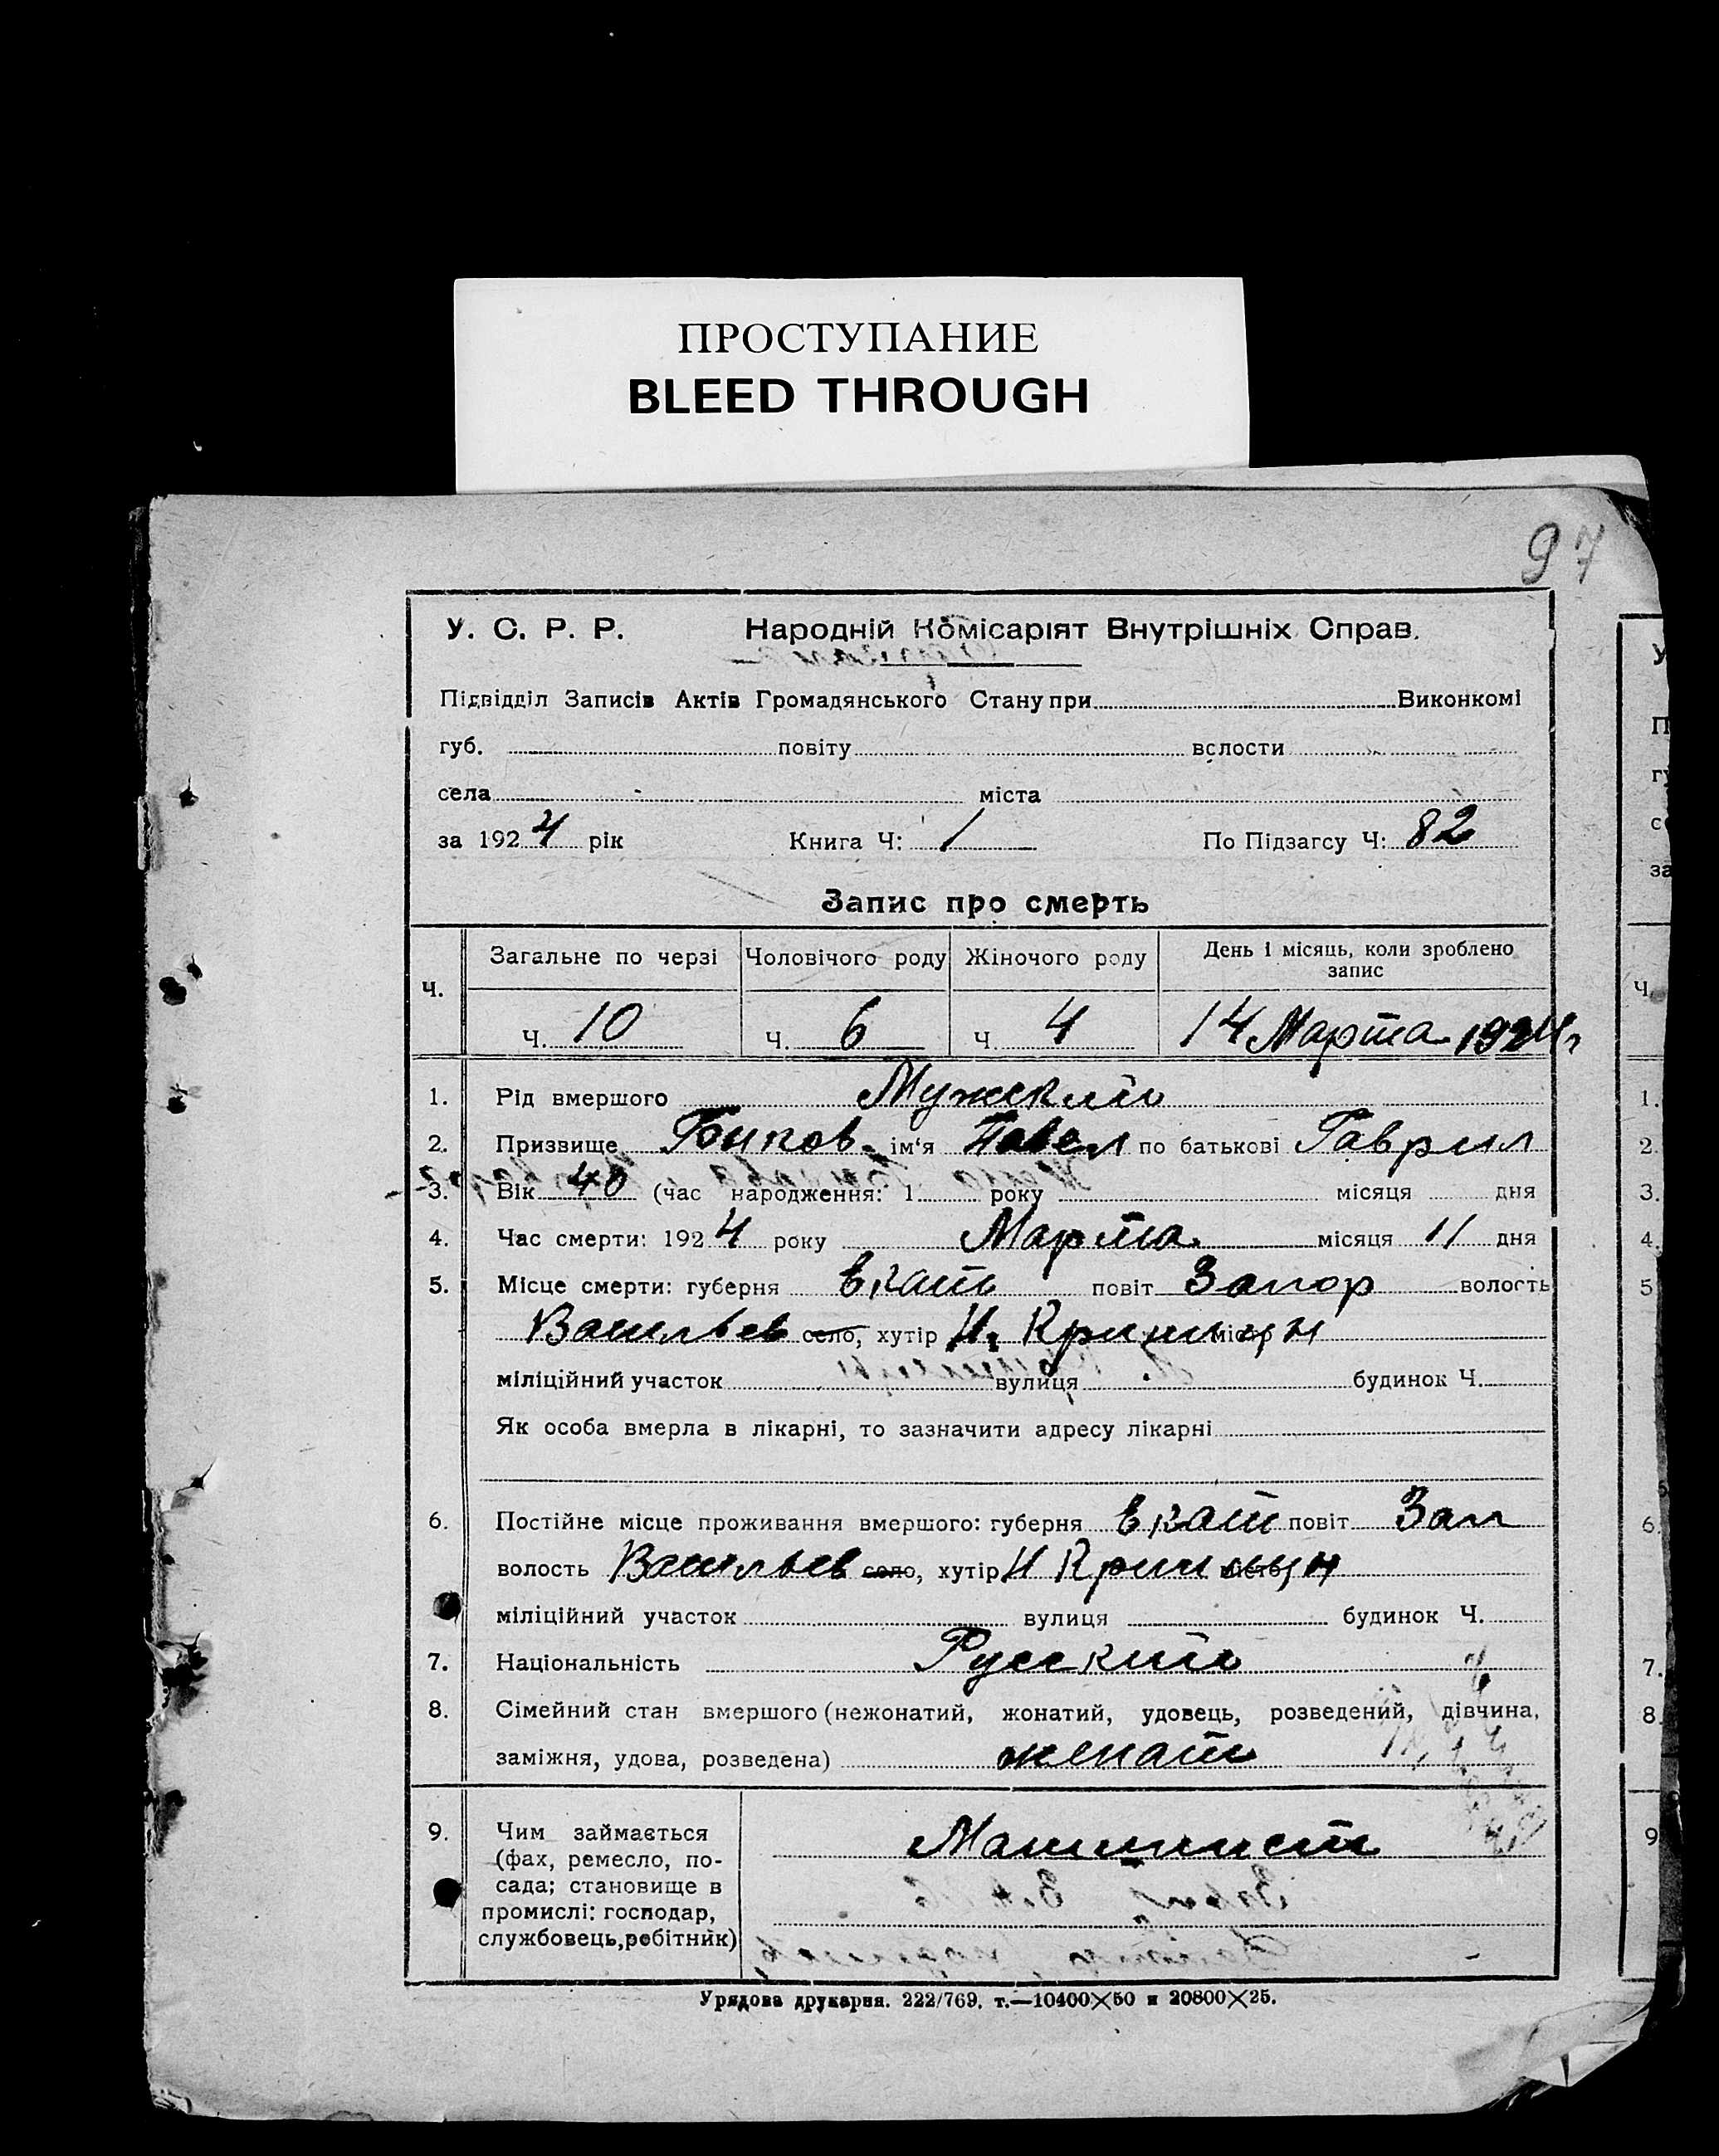 ПРОСТУПАНИЕ
BLEED THROUGH
97
У. С. Р. Р. Народній Комісаріят Внутрішніх Справ.
Підвідділ Записів Актів Громадянського Стану при Виконкомі
губ. повіту волости
села міста
за 1924 рік Книга Ч: 1 По Підзагсу Ч: 82
Запис про смерть
Ч. Загальне по черзі Чоловічого роду Жіночого роду День і місяць, коли зроблено запис
Ч. 10 Ч. 6 Ч. 4 14 Марта 1924 г
1. Рід вмершого Мужской
2. Призвище ім'я Павел по батькові Гаврил
3. Вік 40 (час народження: 1 року місяця дня
4. Час смерти: 1924 року Марта місяця 11 дня
5. Місце смерти: губерня Екат повіт Запор волость
Васильев село, хутір Н. місто
міліційний участок вулиця будинок Ч.
Як особа вмерла в лікарні, то зазначити адресу лікарні
6. Постійне місце проживання вмершого: губерня Екат повіт Зап
волость Васильев село, хутір Н місто
міліційний участок вулиця будинок Ч.
7. Національність Русский
8. Сімейний стан вмершого (нежонатий, жонатий, удовець, розведений, дівчина,
заміжня, удова, розведена) женат
9. Чим займається Машинист
(фах, ремесло, по-
сада; становище в
промислі: господар,
службовець, робітник)
Урядова друкарня. 222/769. т.—10400×50 и 20800×25.